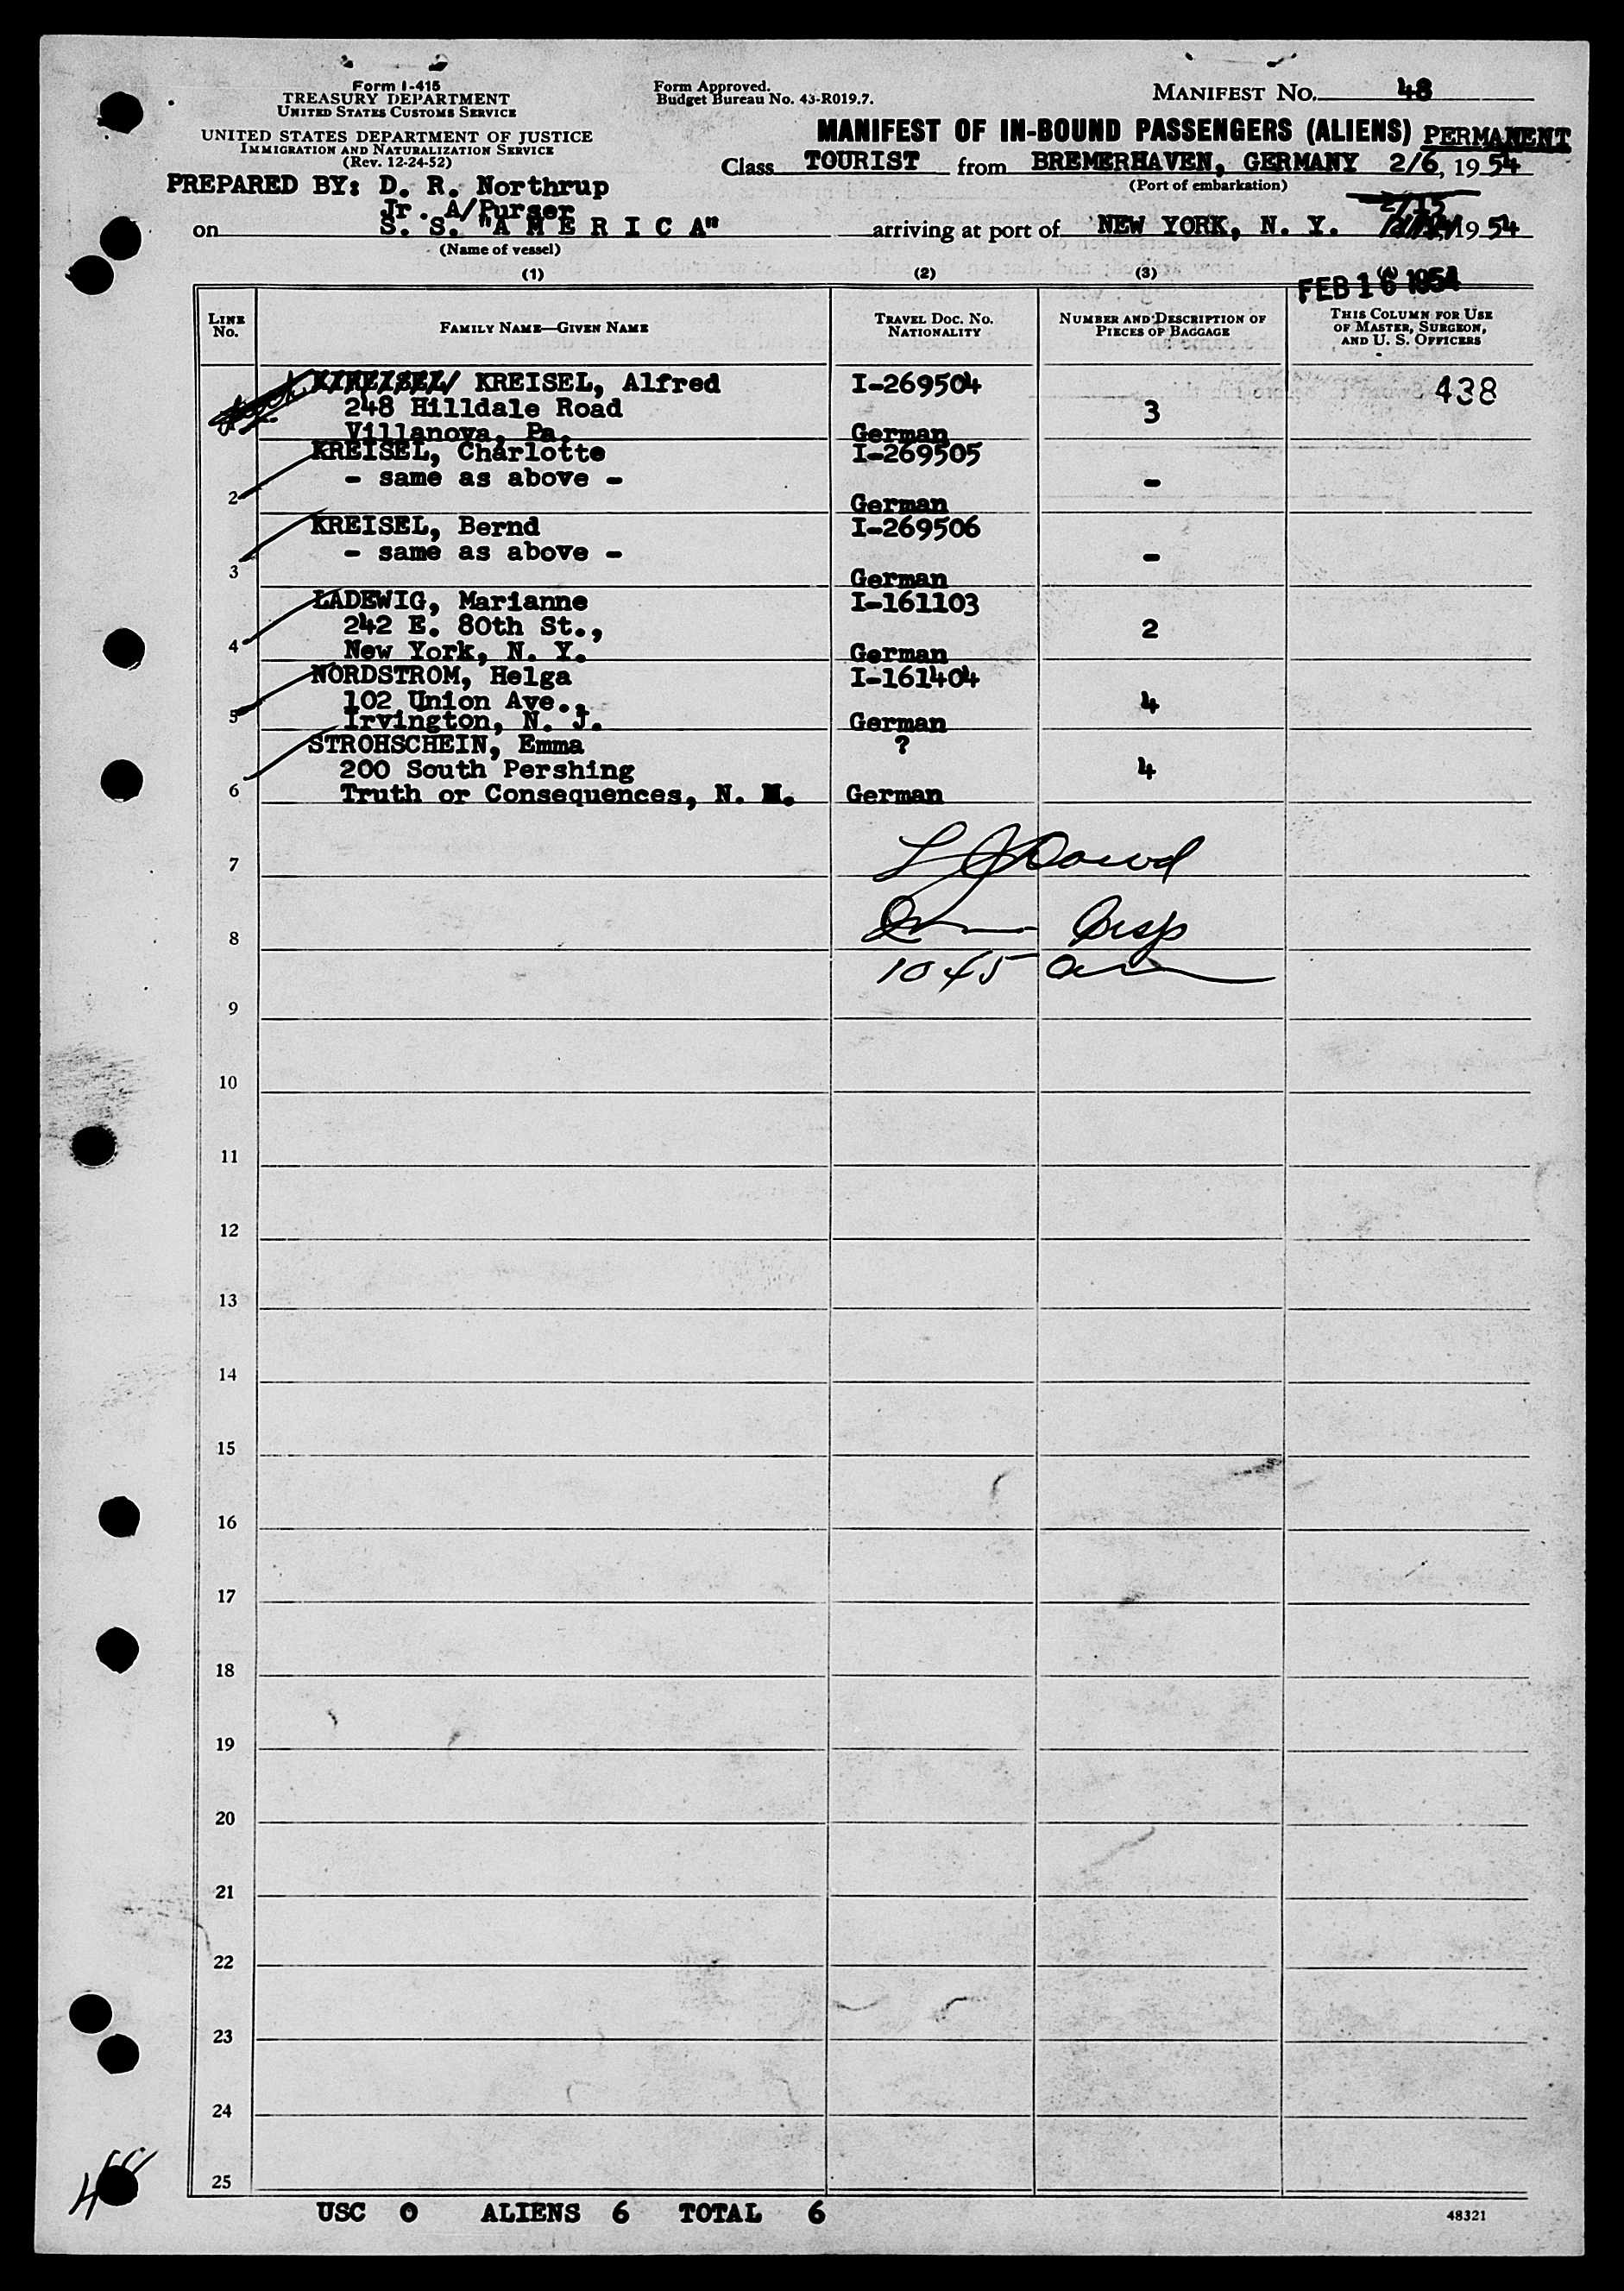 Form I-415
TREASURY DEPARTMENT
UNITED STATES CUSTOMS SERVICE
UNITED STATES DEPARTMENT OF JUSTICE
IMMIGRATION AND NATURALIZATION SERVICE
(Rev. 12-24-52)
Form Approved.
Budget Bureau No. 43-R019.7.
MANIFEST No. 48
MANIFEST OF IN-BOUND PASSENGERS (ALIENS) PERMANENT
Class TOURIST from BREMERHAVEN, GERMANY 2/6, 1954
(Port of embarkation)
PREPARED BY: D. R. Northrup
Jr. A/Purser
on S. S. "A M E R I C A"
(Name of vessel)
2/15
arriving at port of NEW YORK, N. Y. 1954
(1) (2) (3)
FEB 16 1954
LINE No.
FAMILY NAME—GIVEN NAME
TRAVEL DOC. NO. NATIONALITY
NUMBER AND DESCRIPTION OF PIECES OF BAGGAGE
THIS COLUMN FOR USE OF MASTER, SURGEON, AND U. S. OFFICERS
KREISEL, Alfred I-269504 438
248 Hilldale Road 3
Villanova, Pa. German
KREISEL, Charlotte I-269505
- same as above - -
2 German
KREISEL, Bernd I-269506
- same as above - -
3 German
LADEWIG, Marianne I-161103
242 E. 80th St., 2
4 New York, N. Y. German
NORDSTROM, Helga I-161404
102 Union Ave., 4
5 Irvington, N. J. German
STROHSCHEIN, Emma ?
200 South Pershing 4
6 Truth or Consequences, N. M. German
7
8
1045
9
10
11
12
13
14
15
16
17
18
19
20
21
22
23
24
25
48
USC 0 ALIENS 6 TOTAL 6
48321